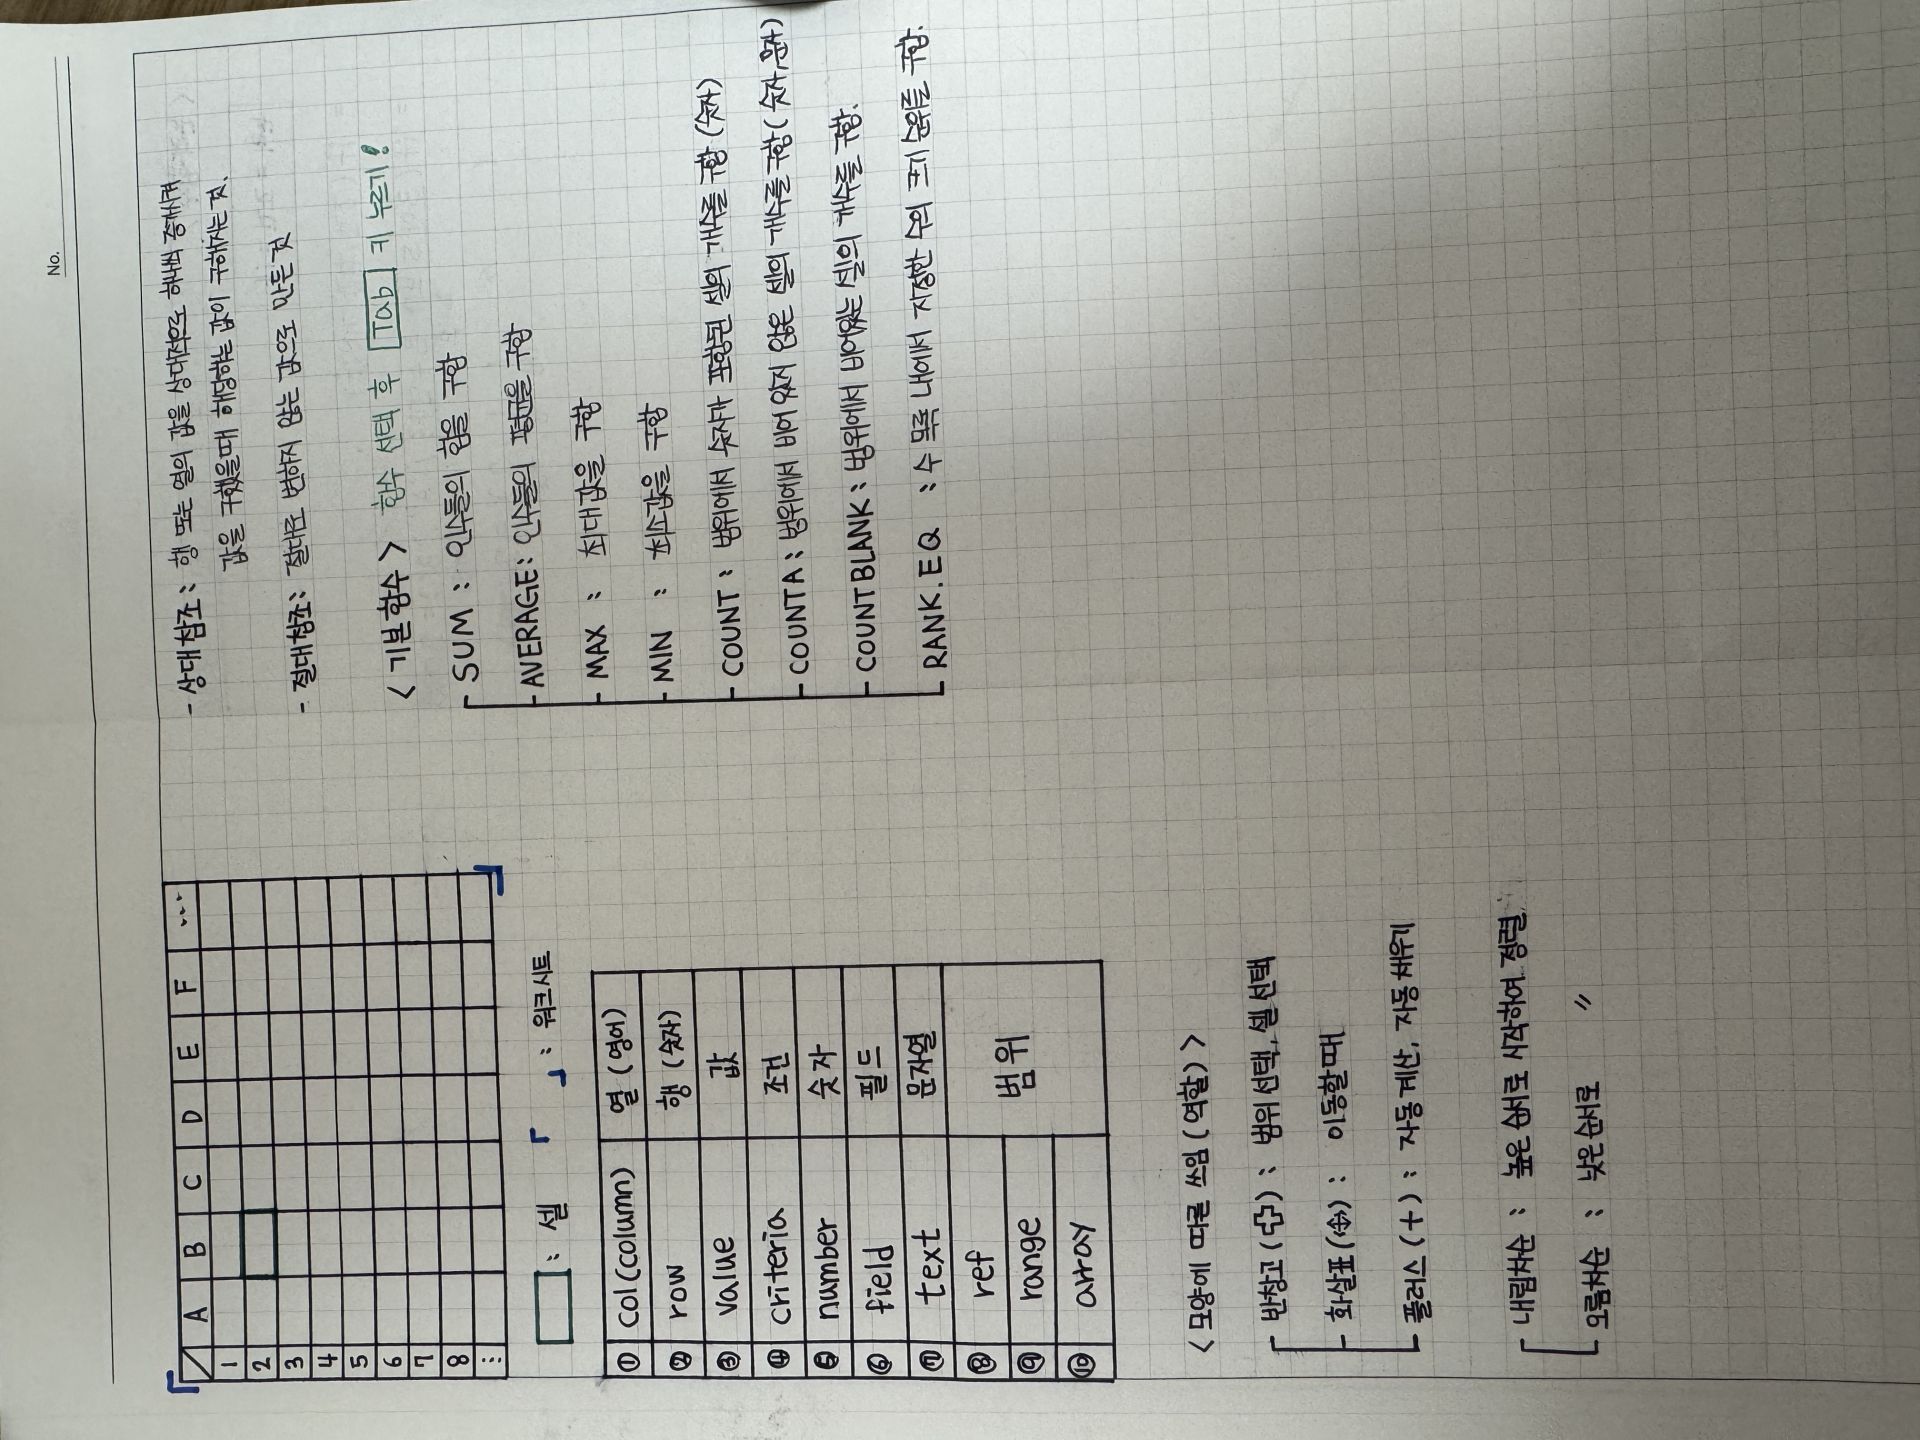 No.
A B C D E F ...
1
2
3
4
5
6
7
8
⋮
: 셀 「 」 : 워크시트
① col(column) 열 (영어)
② row 행 (숫자)
③ value 값
④ criteria 조건
⑤ number 숫자
⑥ field 필드
⑦ text 문자열
⑧ ref 범위
⑨ range
⑩ array
<모양에 따른 쓰임(역할)>
반창고( ) : 범위 선택, 셀 선택
- 화살표( ) : 이동할 때
플러스(+) : 자동 계산, 자동 채우기
내림차순 : 높은 순서로 시작하여 정렬
오름차순 : 낮은 순서로 〃
- 상대참조 : 행 또는 열의 값을 상대적으로 하나씩 증가시켜
값을 구했을때 해당하는 값이 구해지는 것.
- 절대참조 : 절대로 변하지 않는 값으로 만든 것
<기본함수> 함수 선택 후 Tab 키 누르기!
SUM : 인수들의 합을 구함
- AVERAGE : 인수들의 평균을 구함
- MAX : 최대값을 구함
- MIN : 최소값을 구함
- COUNT : 범위에서 숫자가 포함된 셀의 개수를 구함 (숫자)
- COUNTA : 범위에서 비어 있지 않은 셀의 개수를 구함 (숫자,문자)
- COUNTBLANK : 범위에서 비어있는 셀의 개수를 구함.
RANK.EQ : 수 목록 내에서 지정한 수의 크기 순위를 구함.